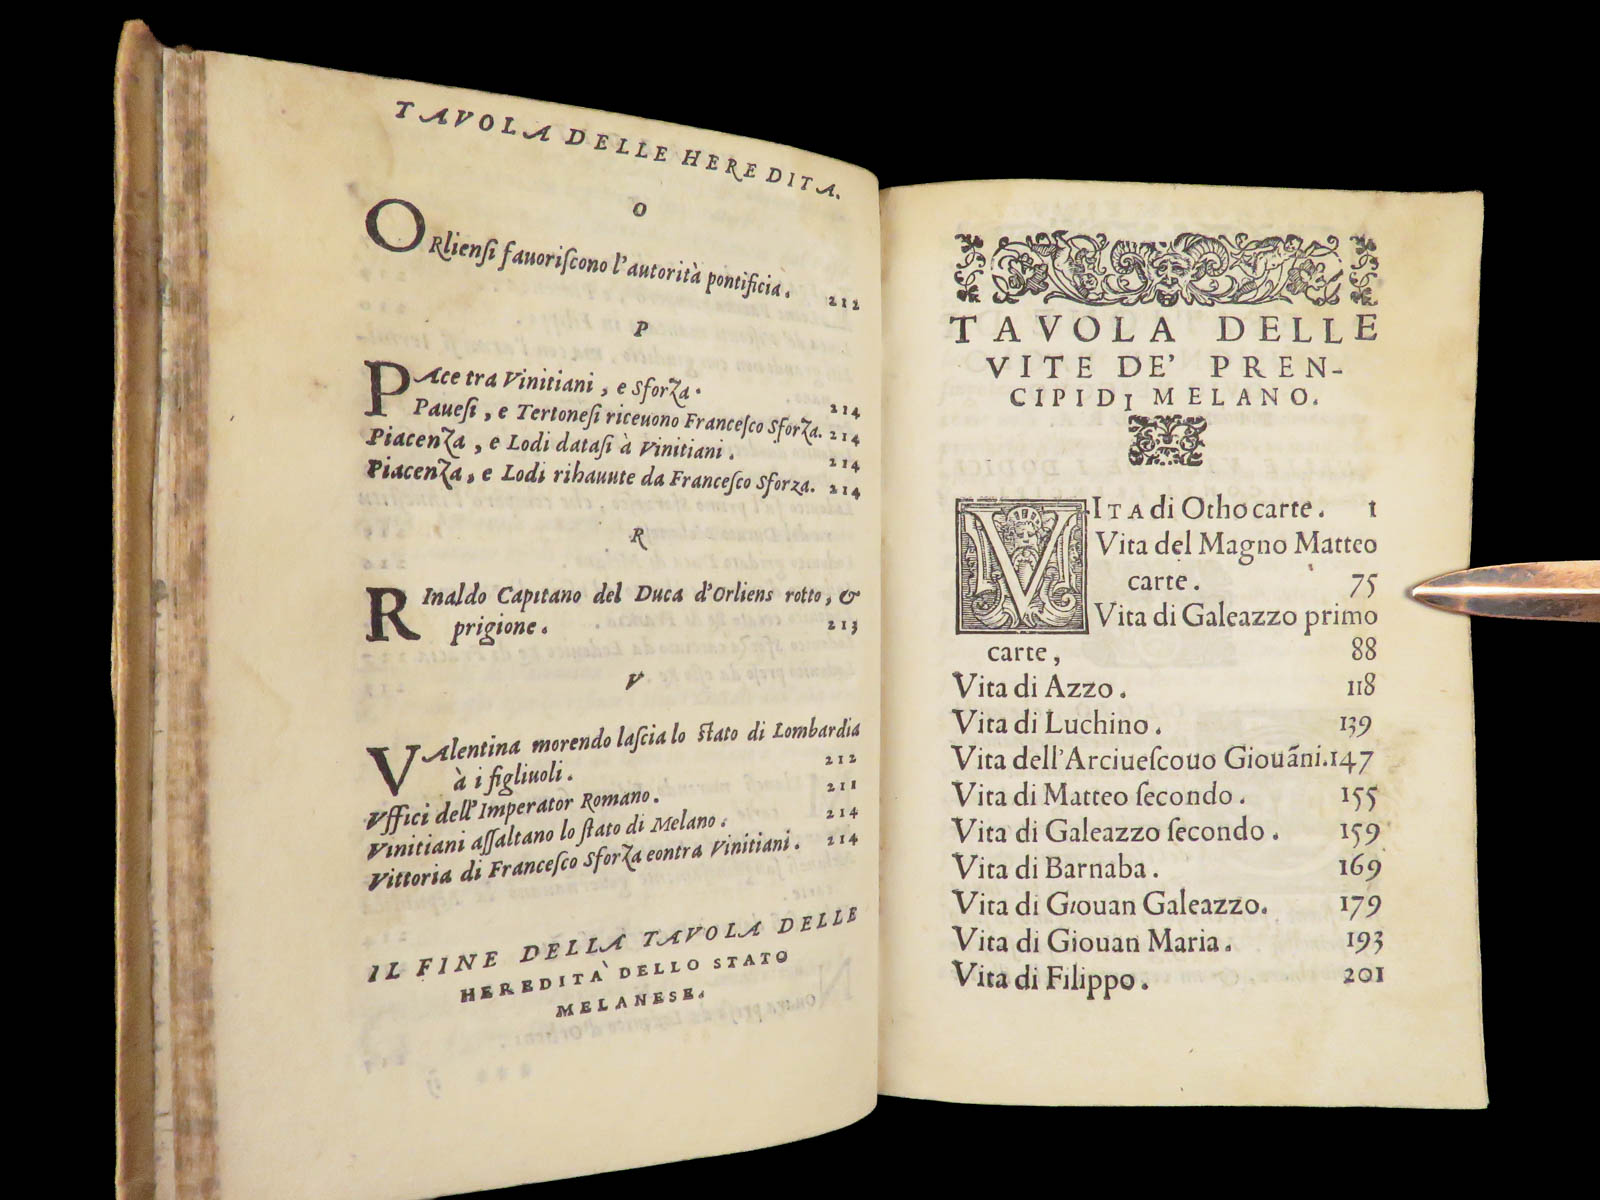 TAVOLA DELLE HEREDITA.
O
ORliensi fauoriscono l'autorità pontificia. 212
P
PAce tra Vinitiani, e Sforza. 214
Pauesi, e Tertonesi riceuono Francesco Sforza. 214
Piacenza, e Lodi datasi à Vinitiani. 214
Piacenza, e Lodi rihauute da Francesco Sforza. 214
R
RInaldo Capitano del Duca d'Orliens rotto, &
prigione. 213
V
VAlentina morendo lascia lo stato di Lombardia
à i figliuoli. 212
Vffici dell'Imperator Romano. 211
Vinitiani assaltano lo stato di Melano. 214
Vittoria di Francesco Sforza contra Vinitiani. 214
IL FINE DELLA TAVOLA DELLE
HEREDITÀ DELLO STATO
MELANESE.
TAVOLA DELLE
VITE DE' PREN-
CIPI DI MELANO.
VITA di Otho carte. 1
Vita del Magno Matteo
carte. 75
Vita di Galeazzo primo
carte, 88
Vita di Azzo. 118
Vita di Luchino. 139
Vita dell'Arciuescouo Giouãni. 147
Vita di Matteo secondo. 155
Vita di Galeazzo secondo. 159
Vita di Barnaba. 169
Vita di Giouan Galeazzo. 179
Vita di Giouan Maria. 193
Vita di Filippo. 201